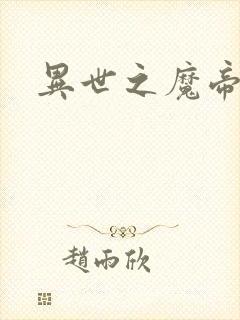 異世之魔帝
趙雨欣